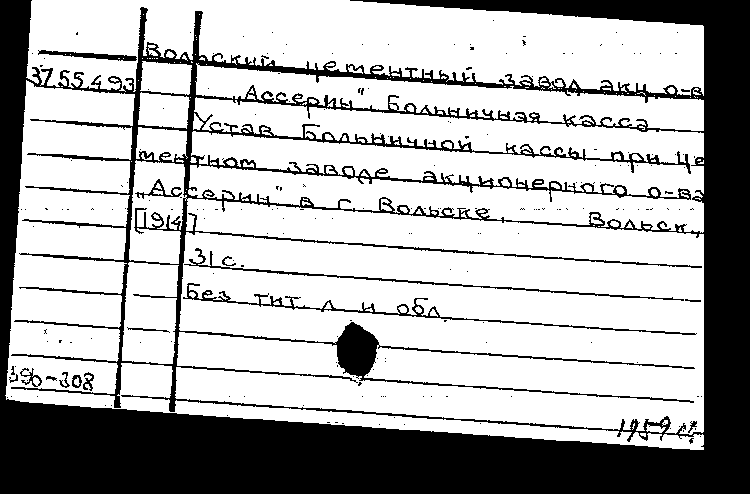 Вольский цементный завод акц. о-в
37.55.4.93
„Ассерин". Больничная касса.
Устав Больничной кассы при Це
ментном заводе акционерного о-ва
„Ассерин" в г. Вольске. Вольск,
[1914]
31 с.
Без тит л и обл.
390-308